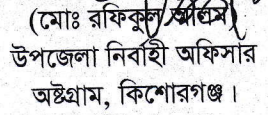 (মোঃ রফিকুল আলম)
উপজেলা নির্বাহী অফিসার
অষ্টগ্রাম, কিশোরগঞ্জ।